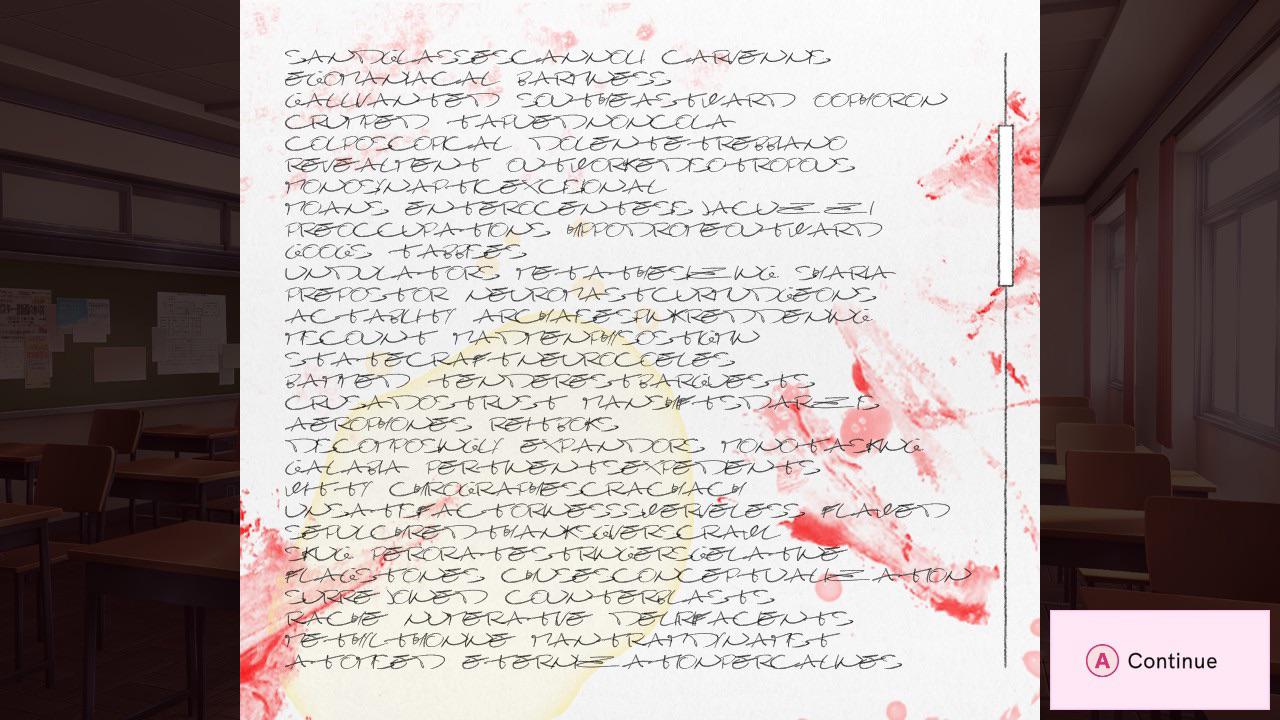 SANDGLASSESCANNOLI
EGOMANIACAL
GALLIVANTED SOUTHEASTWARD OOPHORON
CRUMPED
COLPOSCOPICAL DOLENTETREBBIANO
REVEALMENT OUTWORKEDISOTROPOUS
MONOSYNAPTICEXCISIONAL
MOANS ENTEROCENTESES JACUZZI
PREOCCUPATIONS HIPPODROMEOUTWARD
GOOGS TABBIES
UNDULATORS METATHESIZING SHARIA
PREPOSITOR NEUROMASTCURMUDGEONS
ACTABILITY ARCHAISESPINKREDDENING
MISCOUNT MADMENPHYSOSTIGMIN
STATECRAFTNEUROCOELES
BAMMED TENDERESTBARGUESTS
CRUSADOSTRUST MANSHIFTSDARZIS
AEROPHONES REITBOKS
DISCOMPOSINGLY EXPANDORS MONOTASKING
GALABIA PERTINENTSEXPEDIENTS
WITTY
UNSATISFACTORINESSSWERVELESS FLAWED
SEPULCHRED THANKSGIVERSCRAWL
PERORATESSTRINGERSGELATINE
FLAGSTONES CHUSESCONCEPTUALIZATION
SURREJOINED COUNTERBLASTS
RACHE NUMERATIVE DELIRIFACIENTS
METHYLTHIONINE MANTRAMDYNAMIST
ATOMISED ETERNIZATIONPERCALINES
A Continue